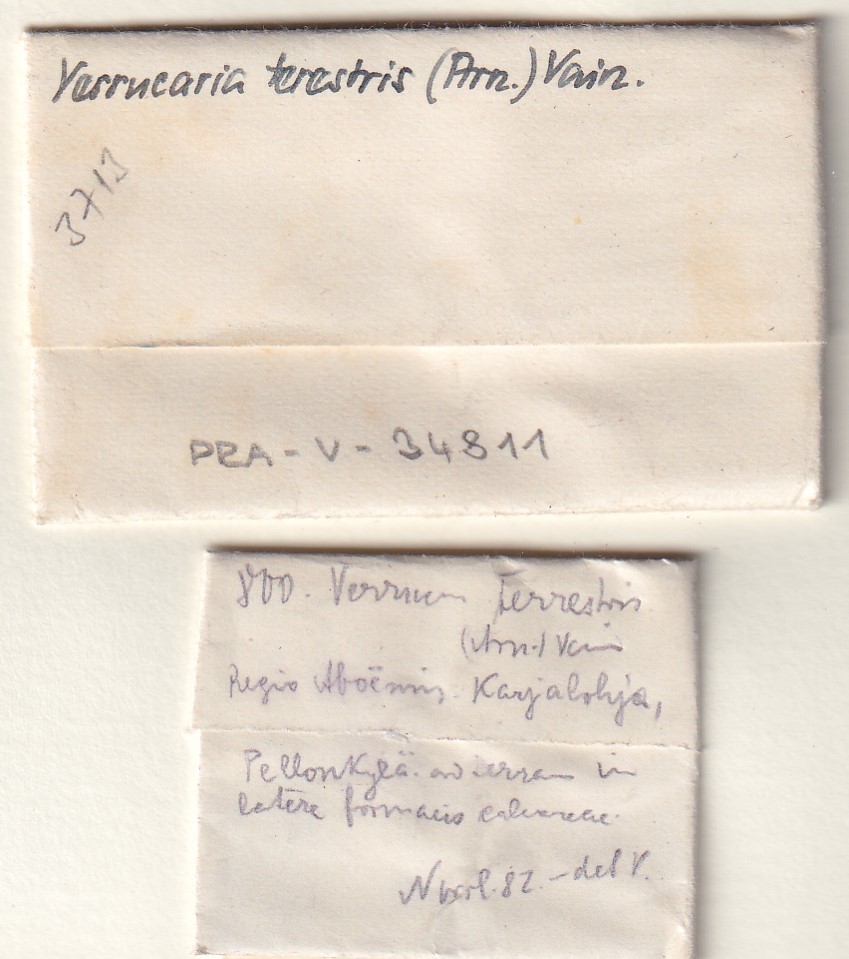 Verrucaria terestris (Arn.) Vain.
3713
PRA - V - 34811
800. Verruca terrestris
(Arn.) Vain
Regio Aboënsis. Karjalohja,
Pellonkylä. ad terram in
latere fornacis calcareae.
82. - del V.